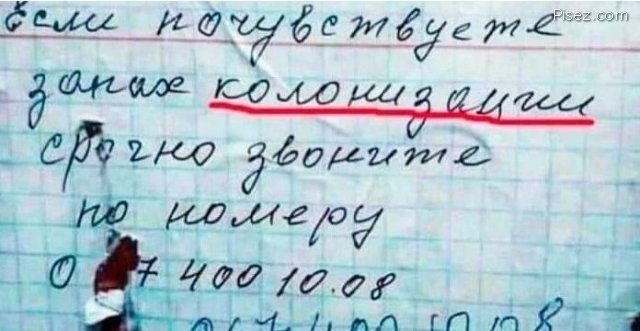 Plsez.com
Если почувствуете
запах колонизации
срочно звоните
по номеру
0 7 400 10.08